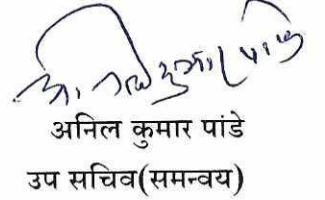 अनिल कुमार पांडे
उप सचिव(समन्वय)